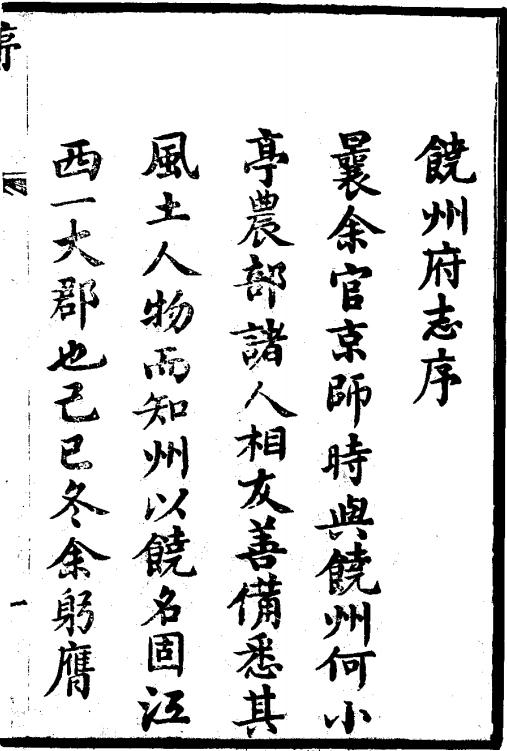 饒州府志序
曩余官京師時與饒州何小
亭農部諸人相友善備悉其
風土人物而知州以饒名固江
西一大郡也己巳冬余躬膺
序
一